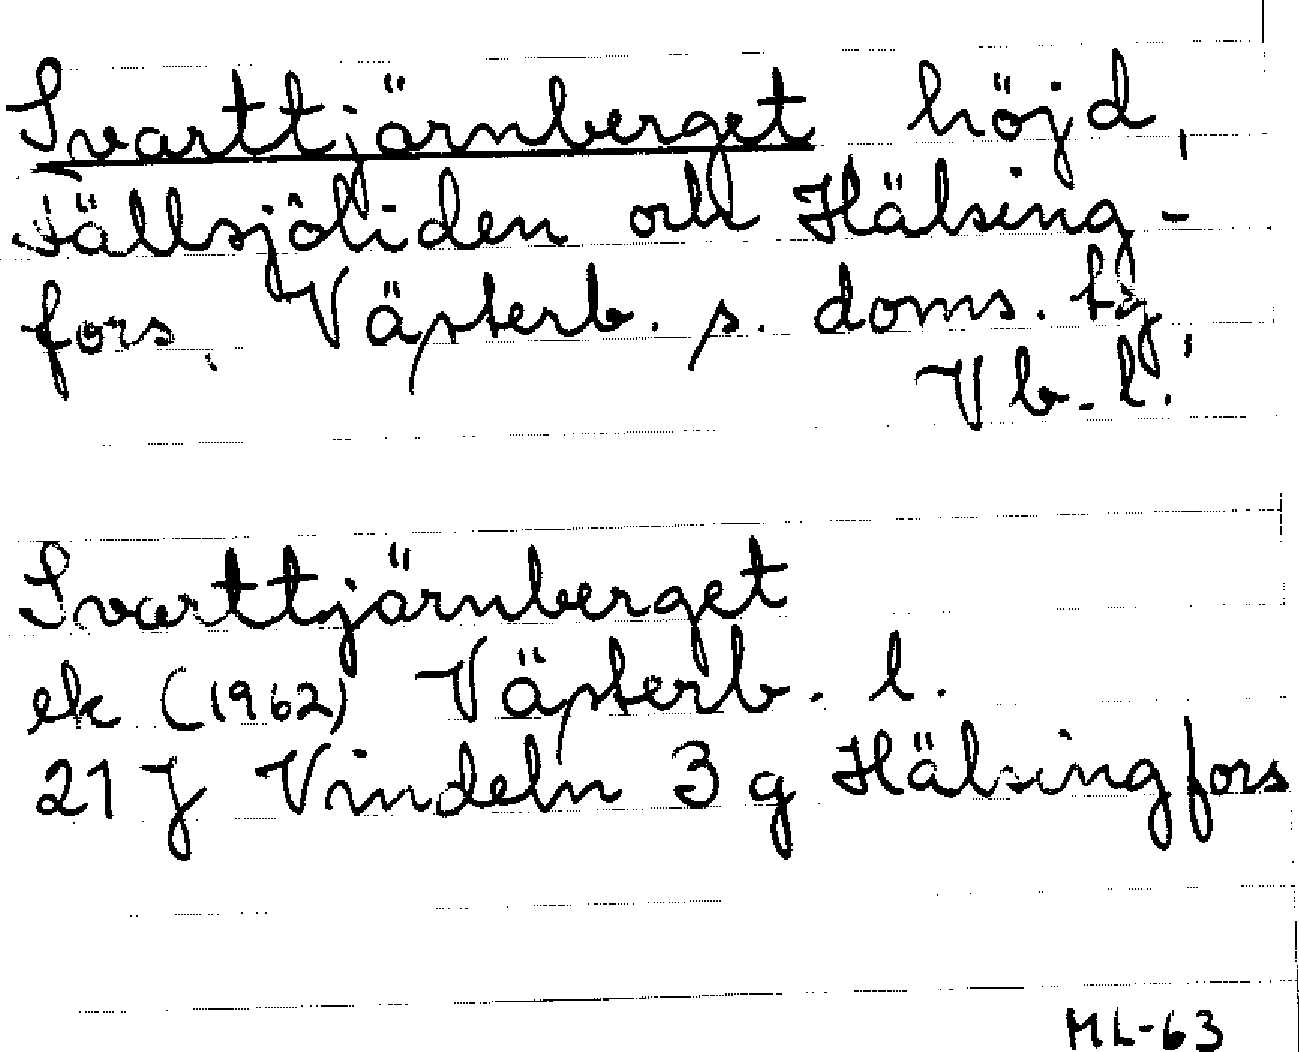 Svarttjärnberget höjd,
Tällsjöliden och Hälsing-
fors, Västerb. s. doms. tg,
Vb. l.
Svarttjärnberget
ek (1962) Västerb. l.
21 J Vindeln 3 g Hälsingfors
ML-63